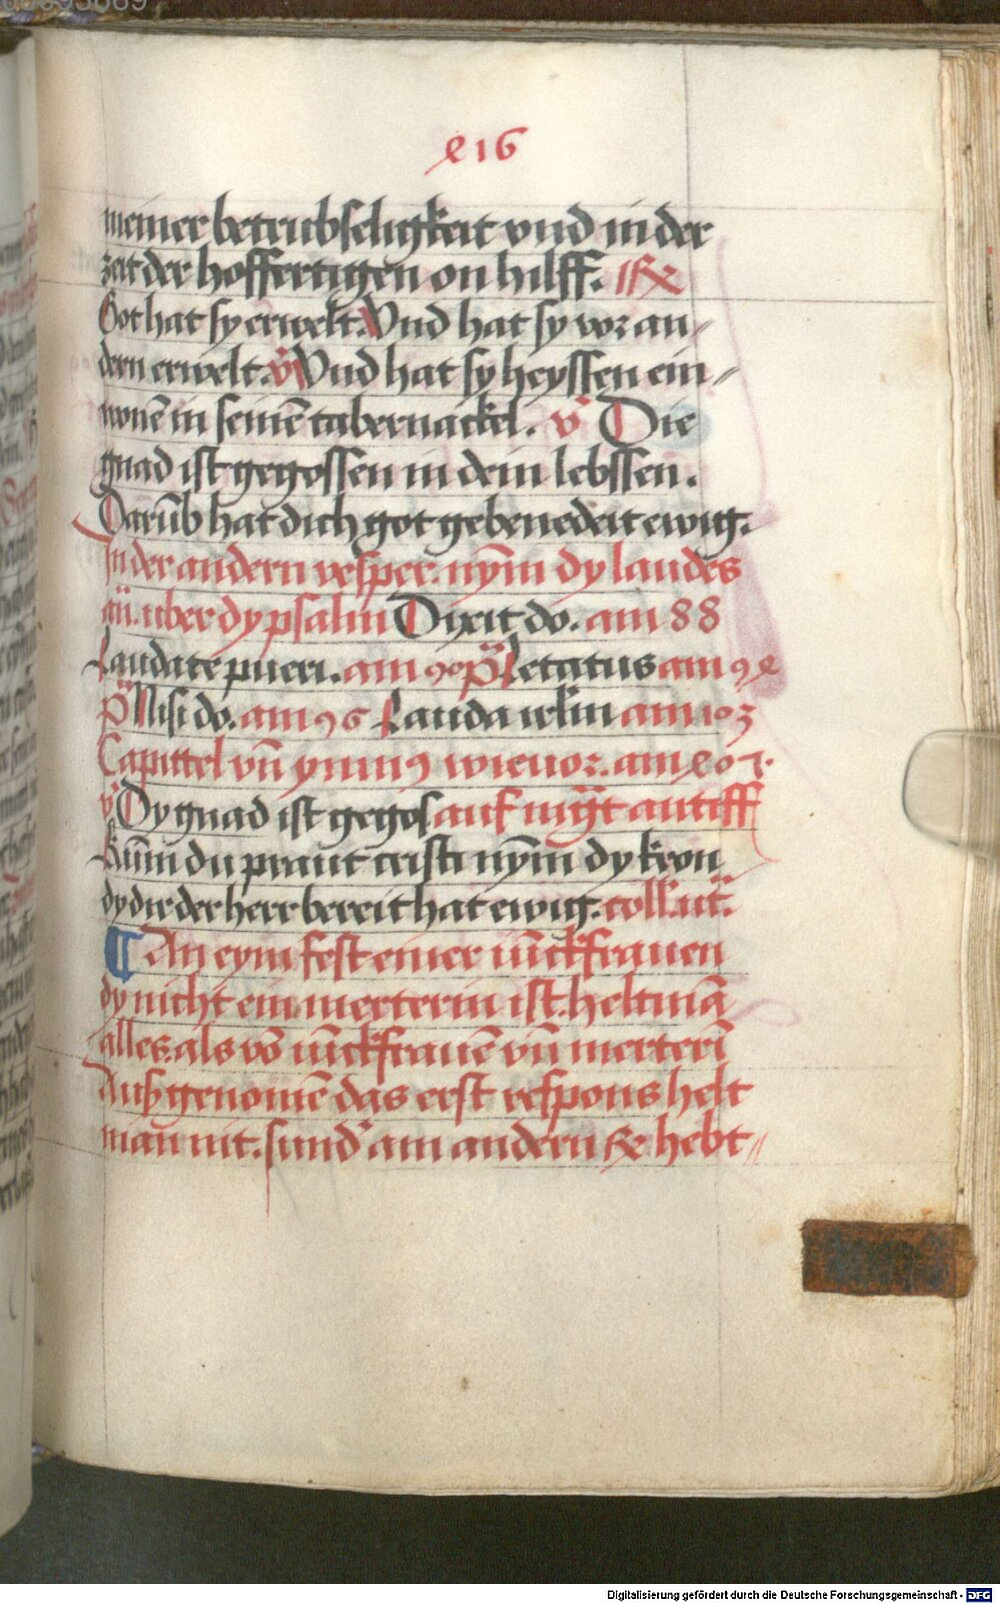 meiner betrubseligkeit vnd in der
zeit der hoffertigen on hilff. ℟
Got hat sy erwelt. Vnd hat sy vor an⸗
dern erwelt. v̓ Vnd hat sy heyssen ein⸗
wonē in seinē tabernackel. v̓ Die
gnad ist gegossen in dein lebssen.
Darūb hat dich got gebenedeit ewig.
In der andern vesper. nym̄ dy laudes
an̄. uber dy psalm Dixit do. am 88
Laudate pueri. am 90 p̄s Letatus am 9
p̄s Nisi do. am 96 Lauda irlm am 103
Capittel vn̄ ymnus wie vor. am
v̓ Dy gnad ist gegos auf mg̃t antiff
Kum̄ du praut cristi nym̄ dy kron
dy dir der herr bereit hat ewig. coll. ut.
¶ An eym fest einer iūckfrauen
dy nicht ein merterin ist. helt mā
alles. als vō iūckfrauē vn̄ merterī
Auß genomē das erst respons helt
man nit. sund' am andern ℟ hebt⸗
Digitalisierung gefördert durch die Deutsche Forschungsgemeinschaft - DFG